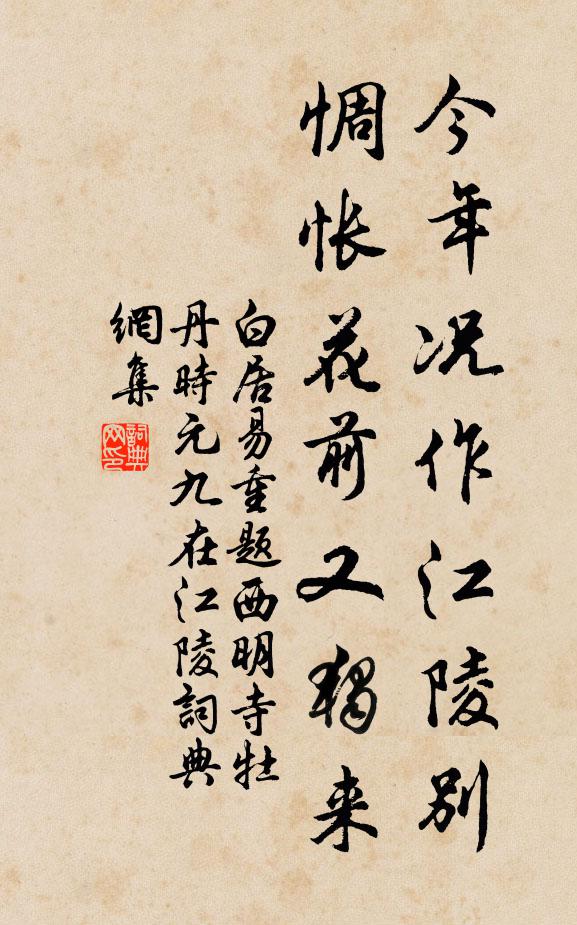 今年况作江陵別
惆怅花前又独来
白居易重题西明寺牡
丹時元九在江陵詞典
網集
詞典
网印